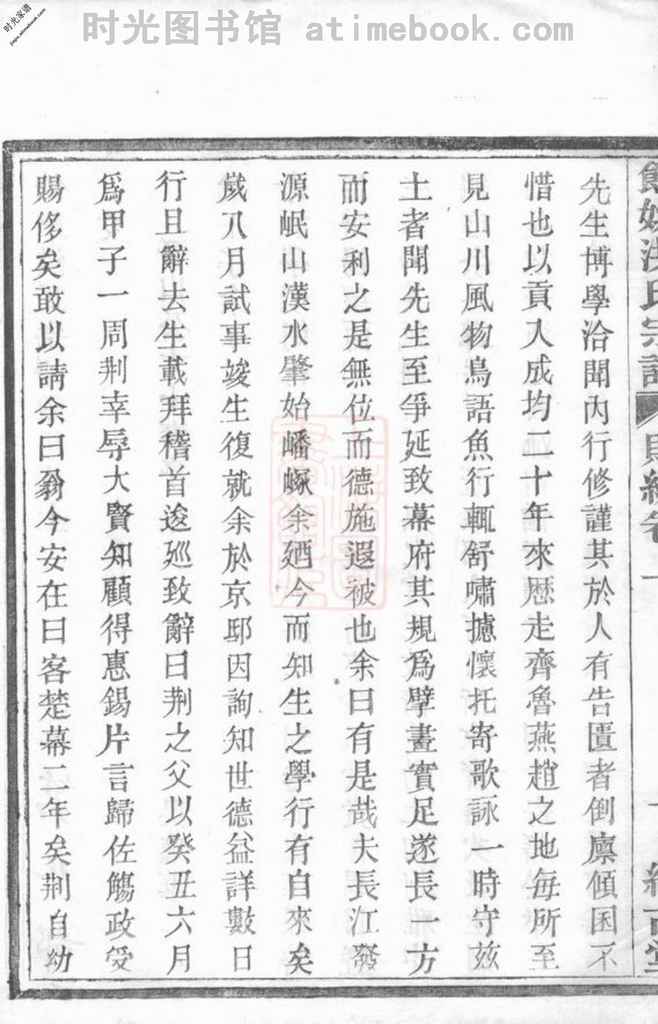 时光图书馆 atimebook.com
时光家谱
先生博學洽聞內行修謹其於人有告匱者倒廪傾囷不
惜也以貢入成均二十年來歷走齊魯燕趙之地每所至
見山川風物鳥語魚行輒舒嘯攄懷托寄歌詠一時守茲
土者聞先生至爭延致幕府其規爲擘畫實足遂長一方
而安利之是無位而德施遐被也余曰有是哉夫長江發
源岷山漢水肇始嶓冢余廼今而知生之學行有自來矣
歲八月試事竣生復就余於京邸因詢知世德益詳數日
行且辭去生載拜稽首逡廵致辭曰荆之父以癸丑六月
爲甲子一周荆幸辱大賢知顧得惠錫片言歸佐觴政受
賜侈矣敢以請余曰翁今安在曰客楚幕二年矣荆自幼